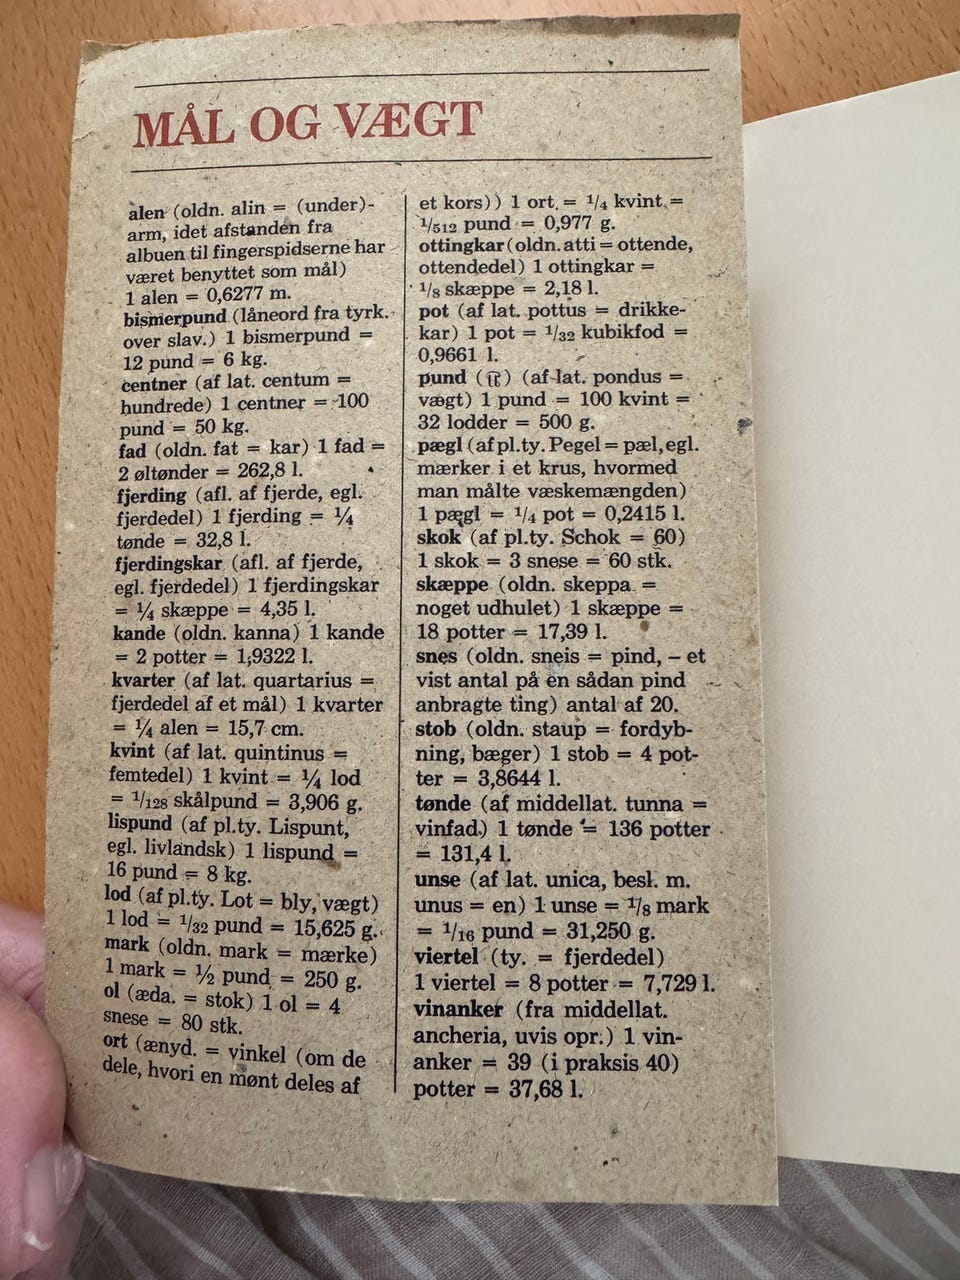 MÅL OG VÆGT
alen (oldn. alin = (under)-
arm, idet afstanden fra
albuen til fingerspidserne har
været benyttet som mål)
1 alen = 0,6277 m.
bismerpund (låneord fra tyrk.
over slav.) 1 bismerpund =
12 pund = 6 kg.
centner (af lat. centum =
hundrede) 1 centner = 100
pund = 50 kg.
fad (oldn. fat = kar) 1 fad =
2 øltønder = 262,8 l.
fjerding (afl. af fjerde, egl.
fjerdedel) 1 fjerding = ¼
tønde = 32,8 l.
fjerdingskar (afl. af fjerde,
egl. fjerdedel) 1 fjerdingskar
= ¼ skæppe = 4,35 l.
kande (oldn. kanna) 1 kande
= 2 potter = 1,9322 l.
kvarter (af lat. quartarius =
fjerdedel af et mål) 1 kvarter
= ¼ alen = 15,7 cm.
kvint (af lat. quintinus =
femtedel) 1 kvint = ¼ lod
= 1/128 skålpund = 3,906 g.
lispund (af pl.ty. Lispunt,
egl. livlandsk) 1 lispund =
16 pund = 8 kg.
lod (af pl.ty. Lot = bly, vægt)
1 lod = 1/32 pund = 15,625 g.
mark (oldn. mark = mærke)
1 mark = ½ pund = 250 g.
ol (æda. = stok) 1 ol = 4
snese = 80 stk.
ort (ænyd. = vinkel (om de
dele, hvori en mønt deles af
et kors)) 1 ort = ¼ kvint =
1/512 pund = 0,977 g.
ottingkar (oldn. atti = ottende,
ottendedel) 1 ottingkar =
⅛ skæppe = 2,18 l.
pot (af lat. pottus = drikke-
kar) 1 pot = 1/32 kubikfod =
0,9661 l.
pund (℔) (af lat. pondus =
vægt) 1 pund = 100 kvint =
32 lodder = 500 g.
pægl (af pl.ty. Pegel = pæl, egl.
mærker i et krus, hvormed
man målte væskemængden)
1 pægl = ¼ pot = 0,2415 l.
skok (af pl.ty. Schok = 60)
1 skok = 3 snese = 60 stk.
skæppe (oldn. skeppa =
noget udhulet) 1 skæppe =
18 potter = 17,39 l.
snes (oldn. sneis = pind, – et
vist antal på en sådan pind
anbragte ting) antal af 20.
stob (oldn. staup = fordyb-
ning, bæger) 1 stob = 4 pot-
ter = 3,8644 l.
tønde (af middellat. tunna =
vinfad) 1 tønde = 136 potter
= 131,4 l.
unse (af lat. unica, besl. m.
unus = en) 1 unse = ⅛ mark
= 1/16 pund = 31,250 g.
viertel (ty. = fjerdedel)
1 viertel = 8 potter = 7,729 l.
vinanker (fra middellat.
ancheria, uvis opr.) 1 vin-
anker = 39 (i praksis 40)
potter = 37,68 l.